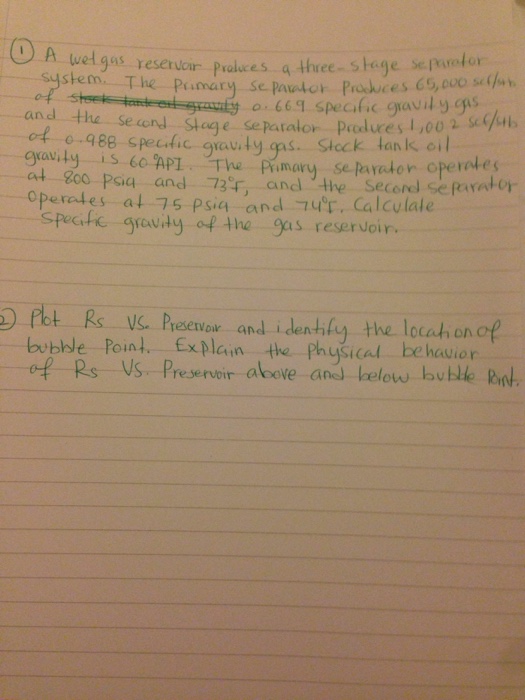 ① A wet gas reservoir produces a three-stage separator
system. The primary separator produces 65,000 scf/stb
of stock tank oil gravity 0.669 specific gravity gas
and the second stage separator produces 1,002 scf/stb
of 0.988 specific gravity gas. Stock tank oil
gravity is 60 °API. The Primary separator operates
at 800 psia and 73°F, and the second separator
operates at 75 psia and 74°F. Calculate
specific gravity of the gas reservoir.
2) Plot Rs VS. Preservoir and identify the location of
bubble Point. Explain the physical behavior
of Rs VS. Preservoir above and below bubble Point.